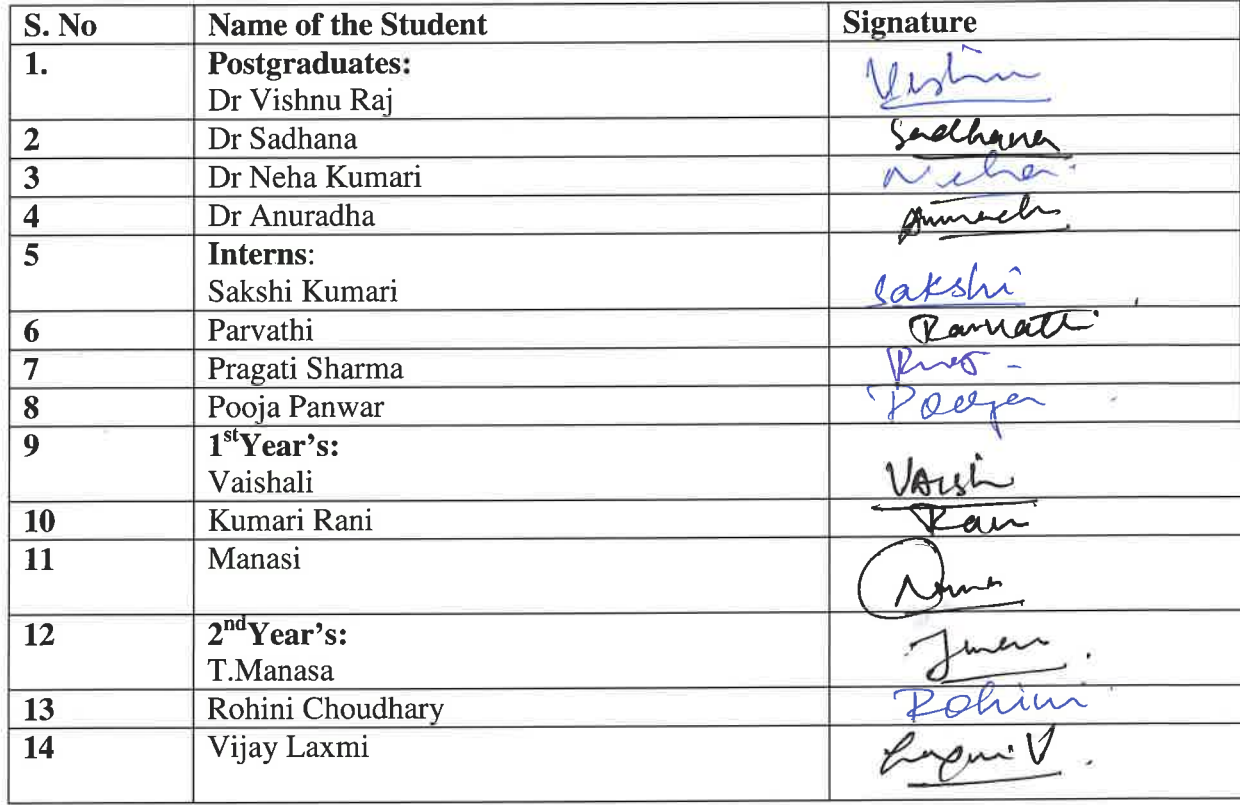 S. No Name of the Student Signature
1. Postgraduates:
Dr Vishnu Raj Vishnu
2 Dr Sadhana Sadhana
3 Dr Neha Kumari Neha
4 Dr Anuradha
5 Interns:
Sakshi Kumari Sakshi
6 Parvathi Parvathi
7 Pragati Sharma
8 Pooja Panwar Pooja
9 1stYear's:
Vaishali Vaish
10 Kumari Rani Rani
11 Manasi
12 2ndYear's:
T.Manasa
13 Rohini Choudhary Rohini
14 Vijay Laxmi Laxmi V